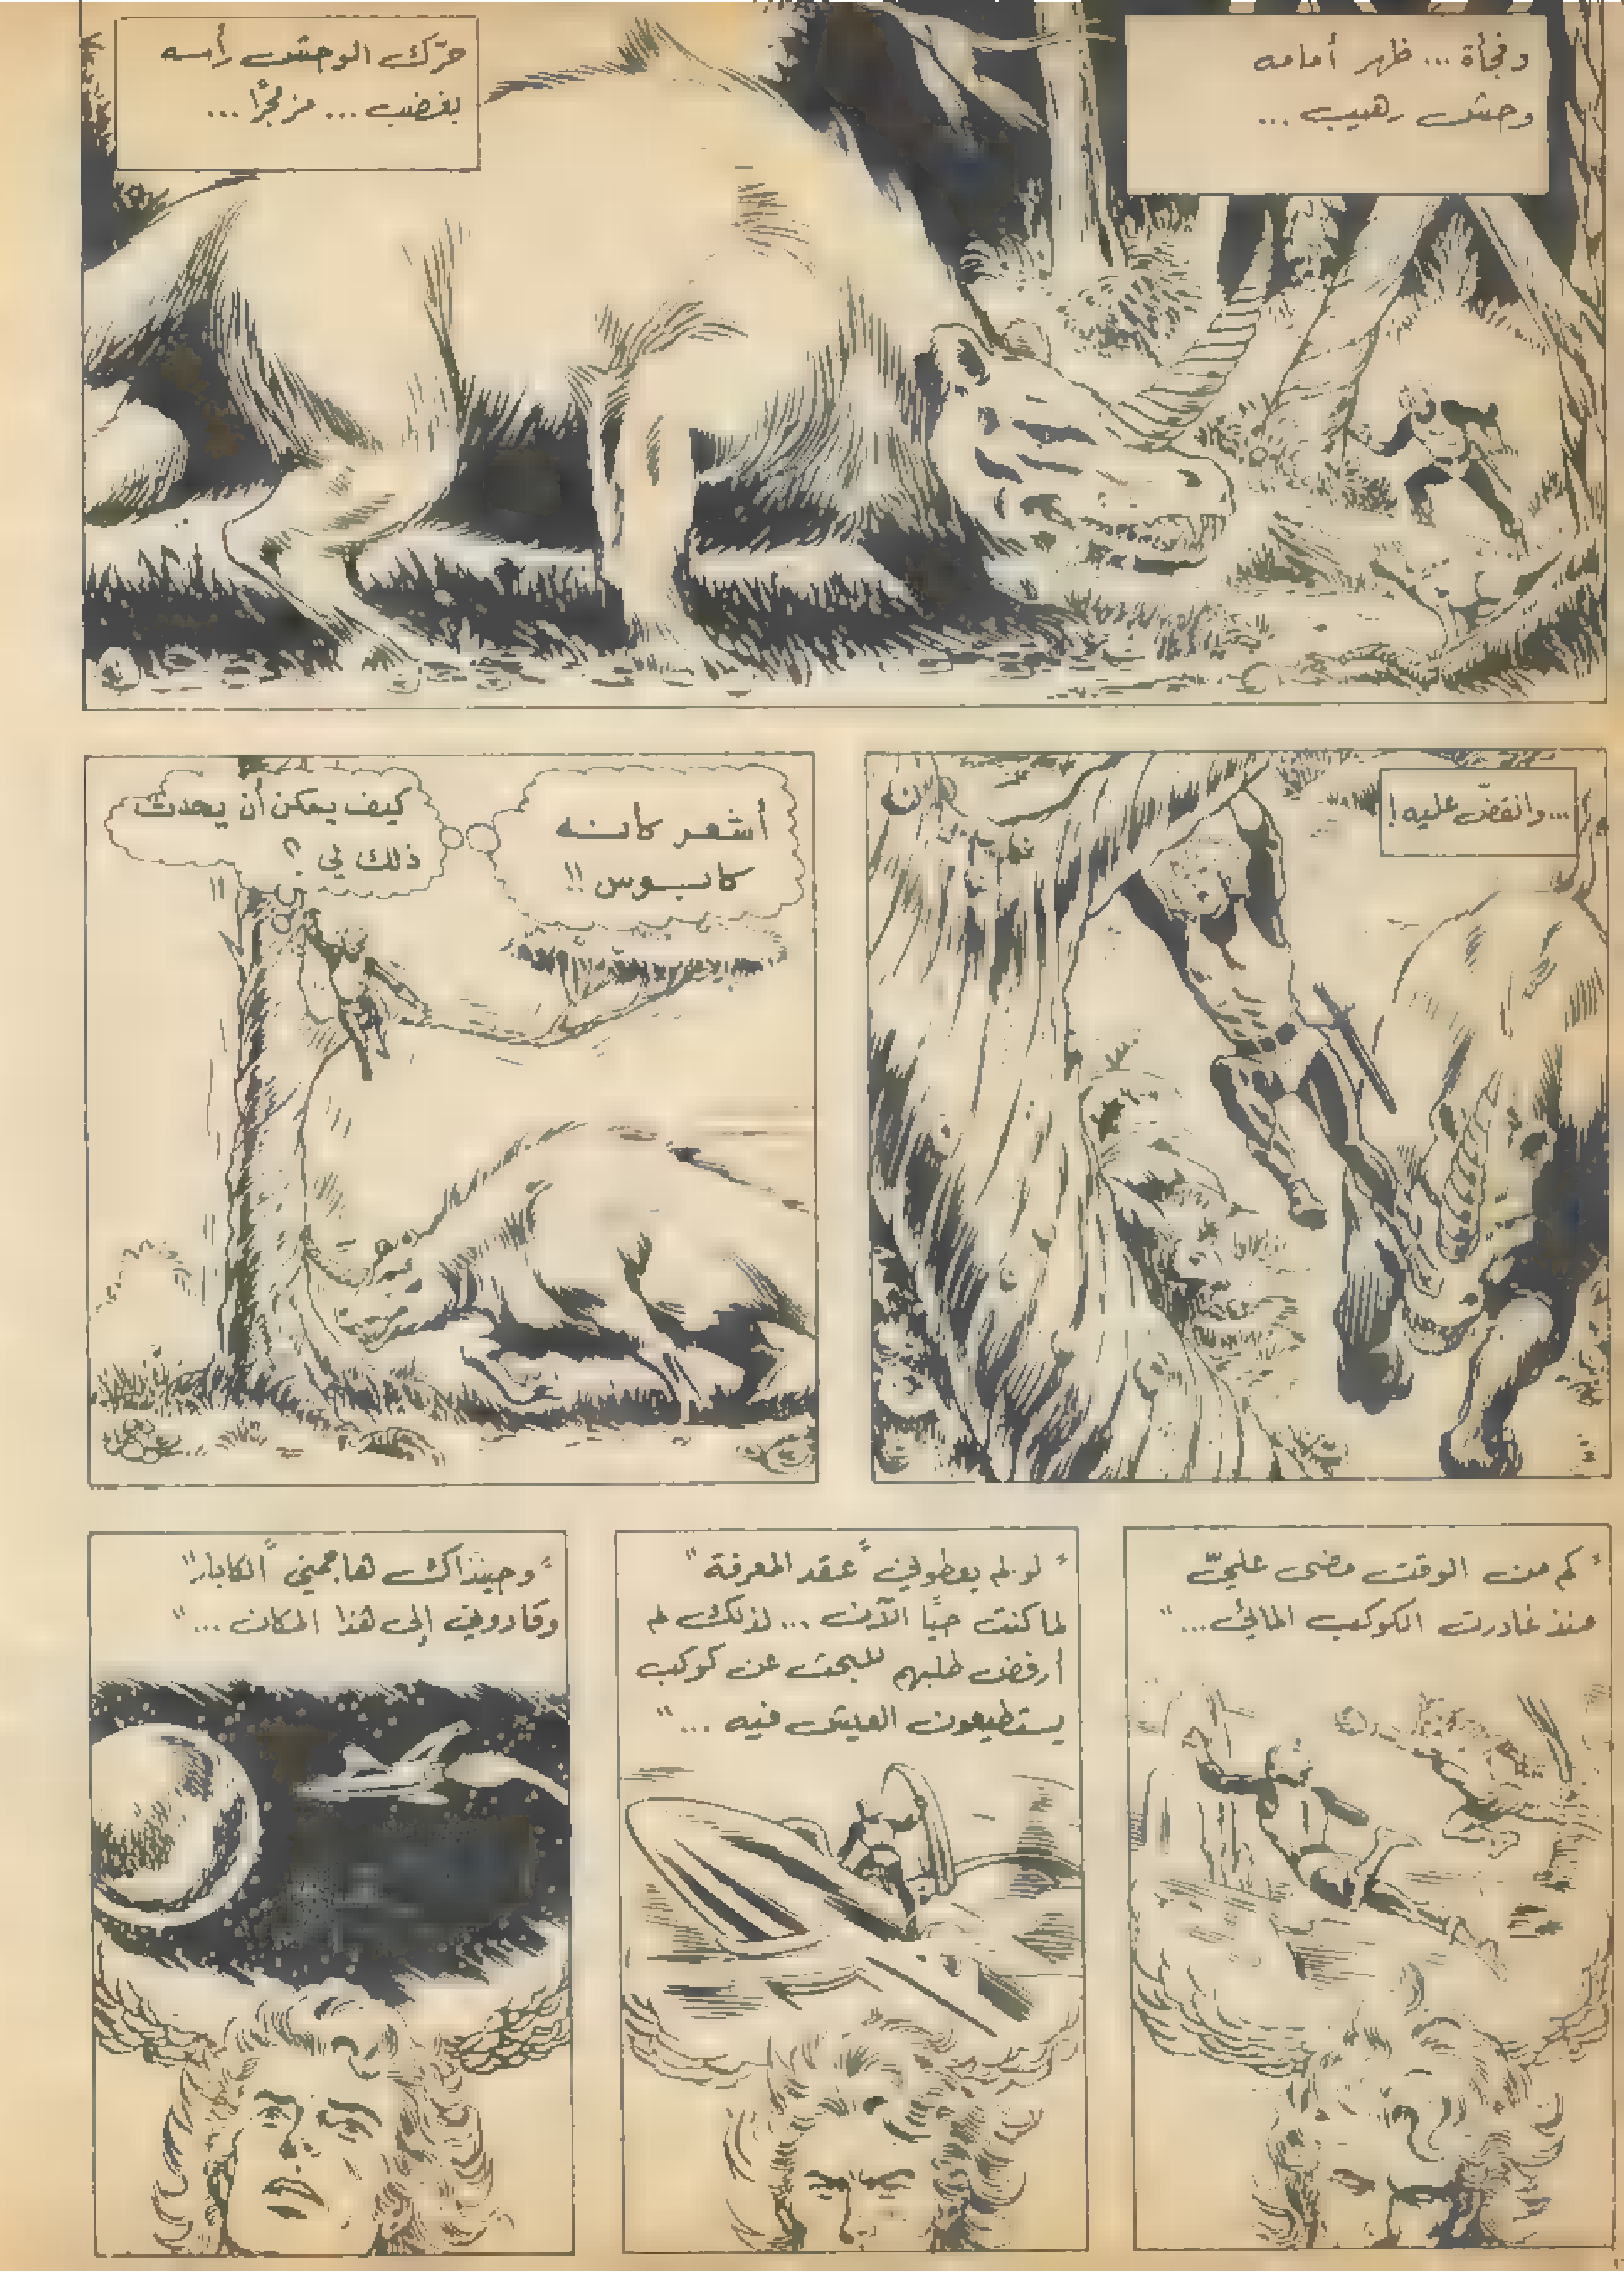 وفجأة... ظهر أمامه
وحش رهيب...
حرّك الوحش رأسه
بغضب... مزمجرًا...
...وانقضّ عليه!
أشعر كانه
كابوس!!
كيف يمكن أن يحدث
ذلك لي؟
"كم من الوقت مضى عليّ
منذ غادرت الكوكب المائي..."
"لو لم يعطوني "عقد المعرفة"
لما كنت حيًا الآن... لذلك لم
أرفض طلبهم للبحث عن كوكب
يستطيعون العيش فيه..."
"وحينذاك هاجمني "الكابار"
وقادوني إلى هذا المكان..."